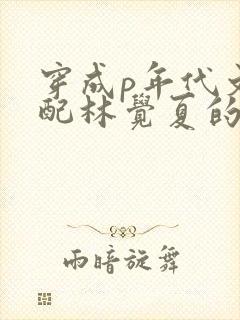 穿成p年代文
配林覺夏的
雨暗旋舞